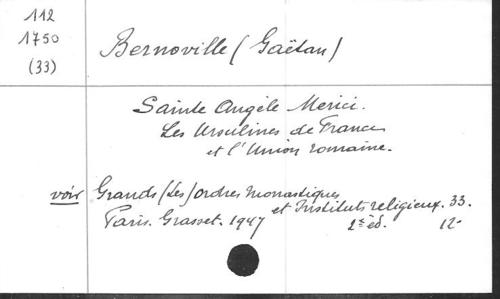 112
1750
(33)
Bernoville (Gaëtan)
Sainte Angèle Merici.
Les Ursulines de France
et l'Union romaine.
voir Grands (Les) ordres monastiques
et Instituts religieux. 33.
Paris. Grasset. 1947 2e éd. 12-